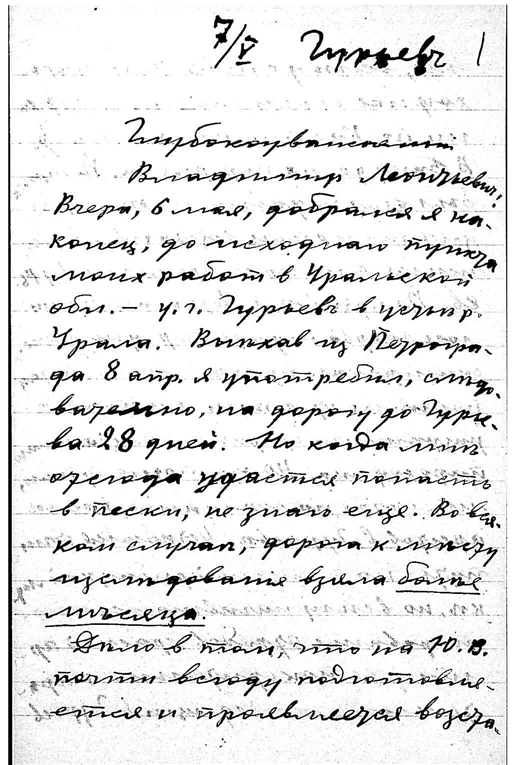 7/V Гурьевъ 1
Глубокоуважаемый
Владимир Леонтьевич!
Вчера, 6 мая, добрался я на-
конец, до исходнаго пункта
моих работ в Уральской
обл. – у. г. Гурьевъ в устьи р.
Урала. Выехав из Петрогра-
да 8 апр. я употребил, следо-
вательно, на дорогу до Гурье-
ва 28 дней. Но когда мнѣ
отсюда удастся попасть
в пески, не знаю еще. Во вся-
ком случаѣ, дорога к мѣсту
изслѣдованiя взяла более
мѣсяца.
Дѣло в том, что на Ю.В.
почти всюду подготовля-
ется и проявляется возста-